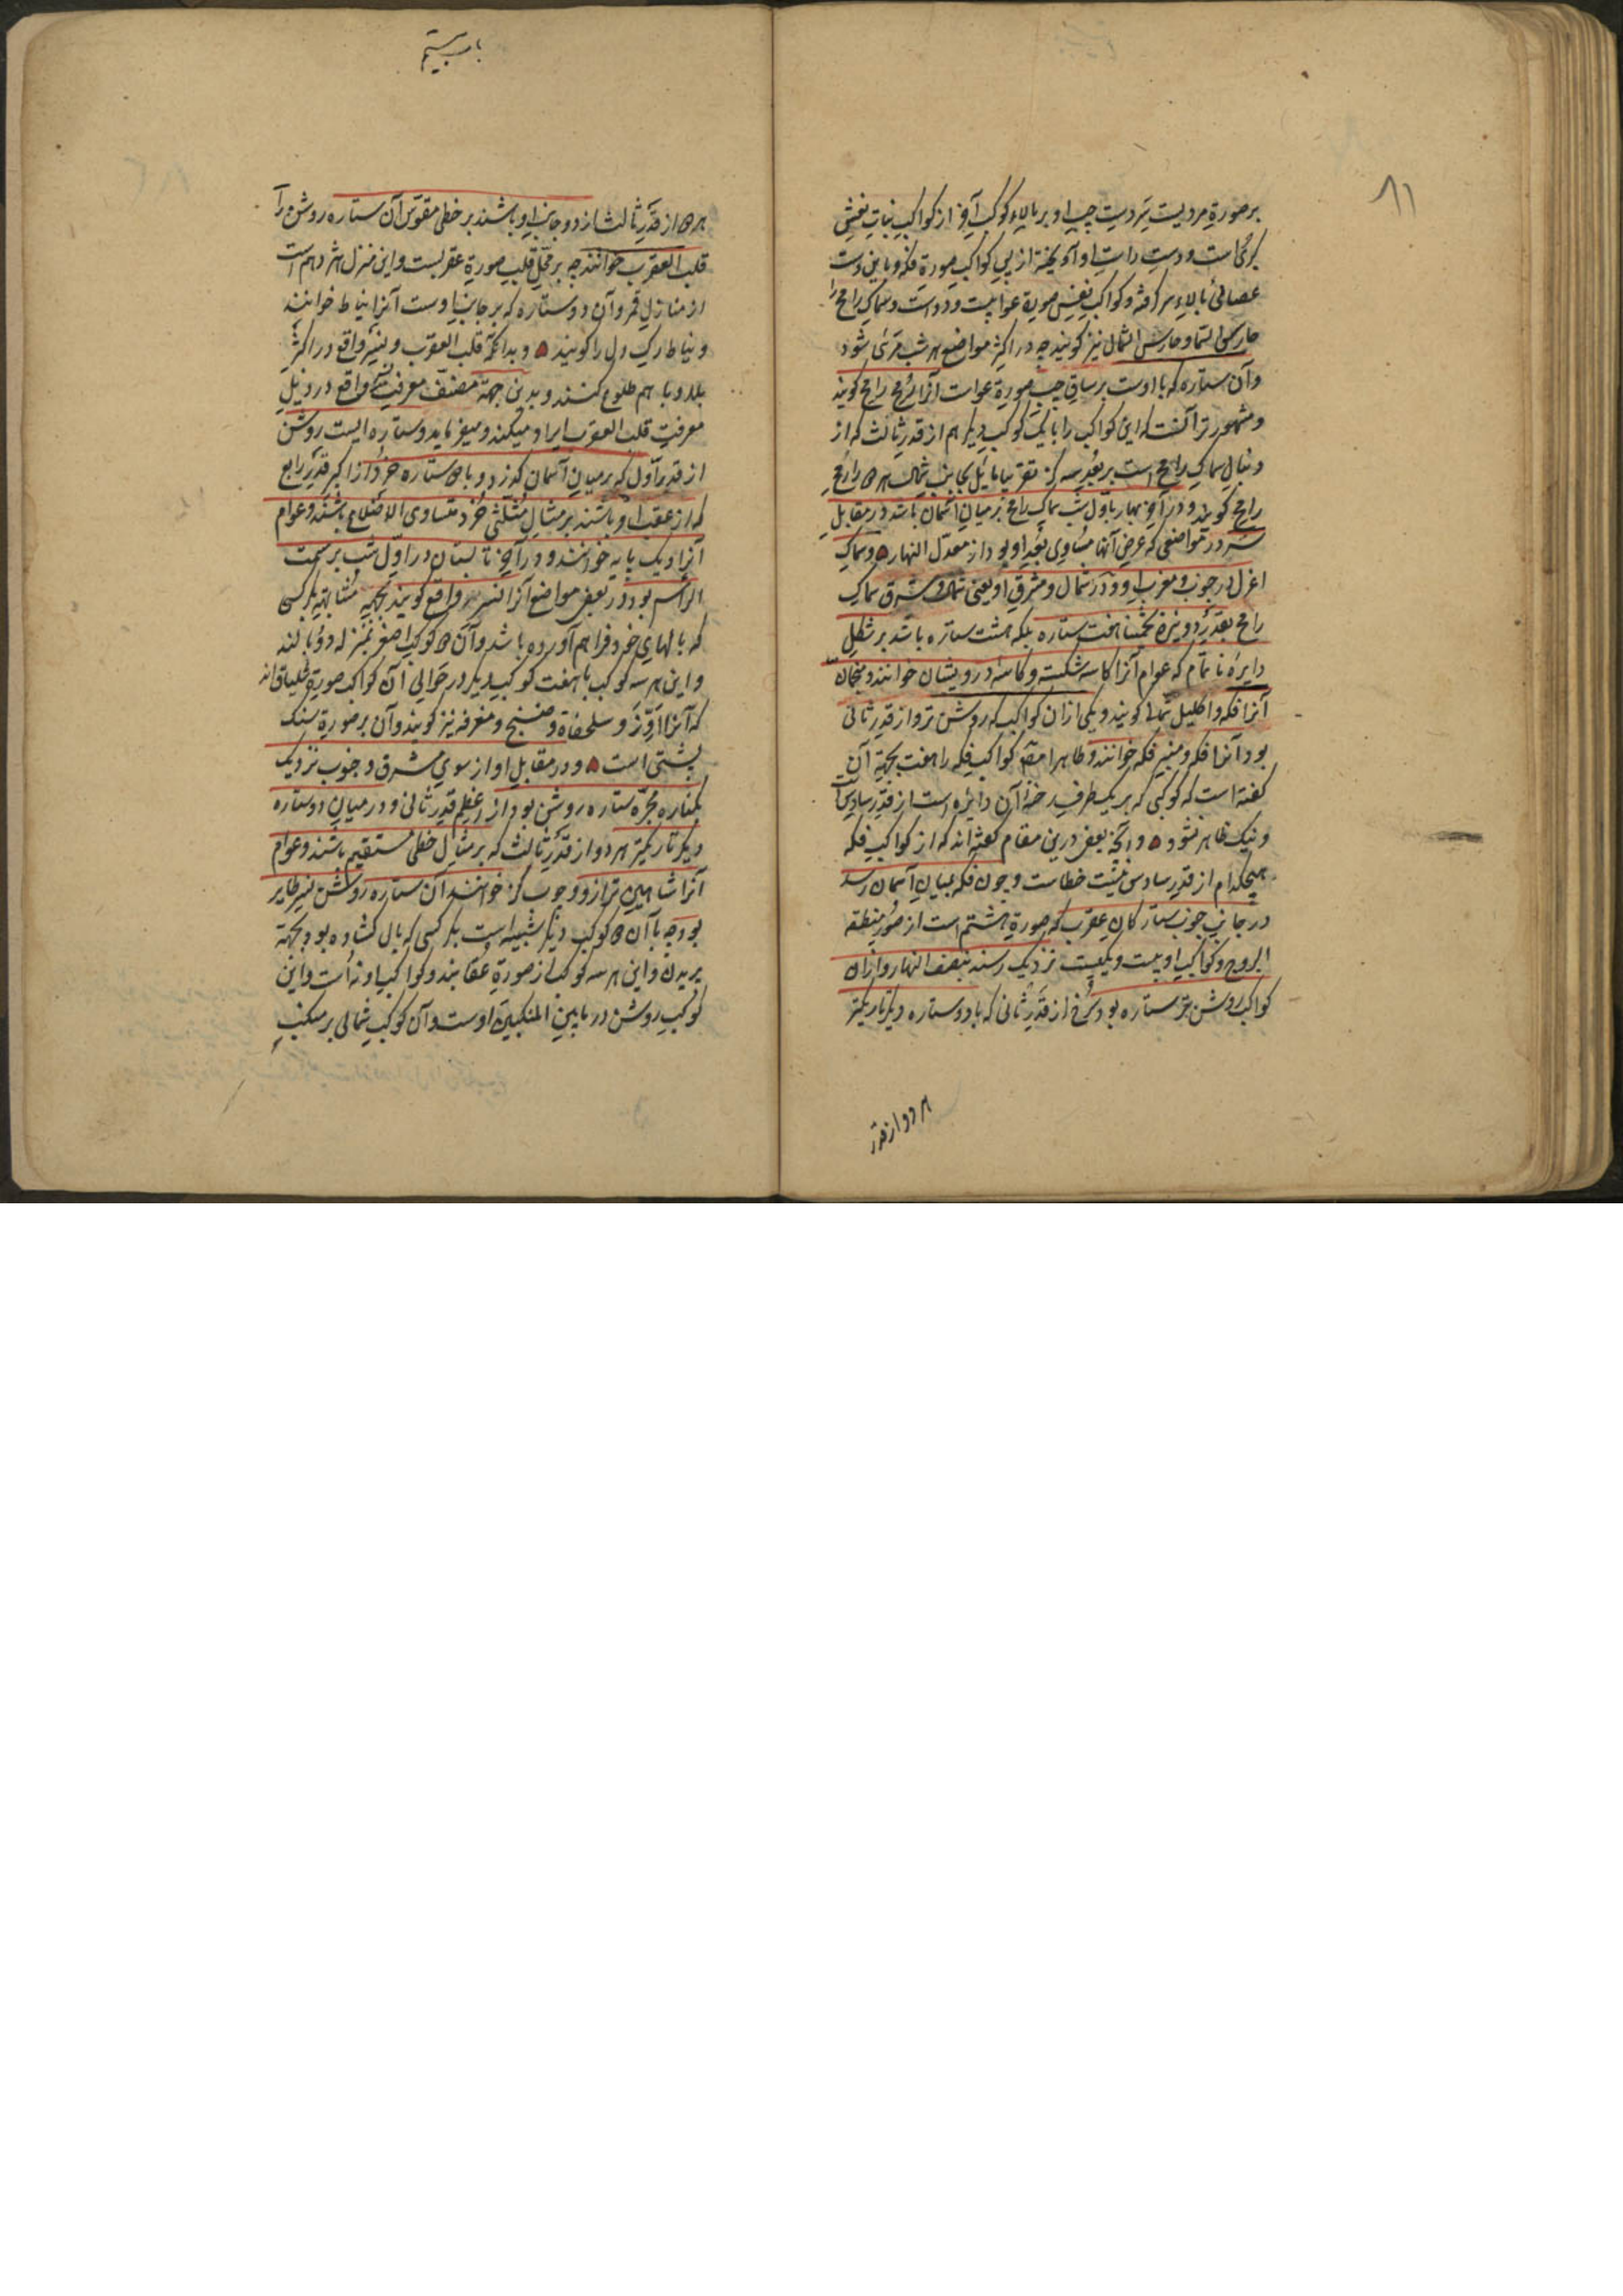 ۸۱
بر صورة مردیست که دست چپ او بر بالاء کوکب آخر از کواکب بنات نعش
کبری است و دست راست او آویخته از پی کواکب صورة فکه و باین دست
عصائی بالاء سر گرفته و کواکب نفس صورة عوا بیست و دو است و سماک رامح را
حارس السما و حارس الشمال نیز کویند چه در اکثر مواضع هر شب مرئی شود
و آن ستاره که با اوست بر ساق چپ صورة عوا است آنرا رمح رامح کویند
و مشهورتر آنست که این کواکب را با یک کوکب دیکر هم از قدر ثالث که از
دنبال سماک رامح است ببعد سه گز تقریبا مایل بجانب شمال هر ۳ را رمح
رامح کویند و در آخر بهار باول شب سماک رامح بر میان آسمان باشد در مقابل
سر در مواضعی که عرض آنها مساوی بعد او بود از معدل النهار ۵ و سماک
اعزل در جنوب و مغرب او و در شمال و مشرق او یعنی شمال و شرق سماک
رامح بقدر دو نیزه تخمینا هفت ستاره بلکه هشت ستاره باشد بر شکل
دایرۀ ناتمام که عوام آنرا کاسه شکسته و کاسۀ درویشان خوانند و منجمان
آنرا فکه و اکلیل شمالی کویند و یکی ازان کواکب که روشن تر و از قدر ثانی
بود آنرا فکه و منیر فکه خوانند و ظاهرا مصنف کواکب فکه را هفت بجهة آن
کفته است که کوکبی که بر یک طرف رخنۀ آن دایره است از قدر سادس است
و نیک ظاهر نشود ۵ و آنچه بعض درین مقام کفته اند که از کواکب فکه
هیچکدام از قدر سادس نیست خطاست و چون فکه بمیان آسمان رسد
در جانب جنوب ستارکان عقرب که صورة هشتم است از صور منطقه
البروج و کواکب او بیست و یکیست نزدیک رسند بنصف النهار و ازان
کواکب روشن تر ستاره بود سرخ از قدر ثانی که با دو ستاره دیکر تاریکتر
هر دو از قدر
باب بیستم
هر ۲ از قدر ثالث از دو جانب او باشند بر خطی مقوس آن ستاره روشن را
قلب العقرب خوانند چه بر محل قلب صورة عقربست و این منزل هژدهم است
از منازل قمر و آن دو ستاره که بر جانب اوست آنرا نیاط خوانند
و نیاط رک دل را کویند ۵ و بدانکه قلب العقرب و نسر واقع در اکثر
بلاد با هم طلوع کنند و بدین جهة مصنف معرفت نسر واقع در ذیل
معرفت قلب العقرب ایراد میکند و میفرماید و ستاره ایست روشن
از قدر اول که بر میان آسمان کذرد و با ۲ ستاره خرد از اکبر قدر رابع
که از عقب او باشند بر مثال مثلثی خرد متساوی الاضلاع باشند و عوام
آنرا دیک پایه خوانند و در آخر تابستان در اول شب بر سمت
الراس بود و در بعض مواضع آنرا نسر واقع کویند بجهة مشابهت بکرکسی
که بالهای خود فراهم آورده باشد و آن ۲ کوکب اصغر بمنزله دو بالند
و این هر سه کوکب با هفت کوکب دیکر در حوالی آن کواکب صورة شلیاق اند
که آنرا اوز و سلحفاة و صنج و معرفه نیز کویند و آن بر صورة سنک
پشتی است ۵ و در مقابل او از سوی مشرق و جنوب نزدیک
بکناره مجره ستاره روشن بود از اعظم قدر ثانی و در میان دو ستاره
دیکر تاریکتر هر دو از قدر ثالث که بر مثال خطی مستقیم باشند و عوام
آنرا شاهین ترازو و چوب کز خوانند آن ستاره روشن نسر طایر
بود چه با آن ۲ کوکب دیکر شبیه است بکرکسی که بال کشاده بود بجهة
پریدن و این هر سه کوکب از صورة عقابند و کواکب او نه است و این
کوکب روشن در ما بین المنکبین اوست و آن کوکب شمالی بر منکب